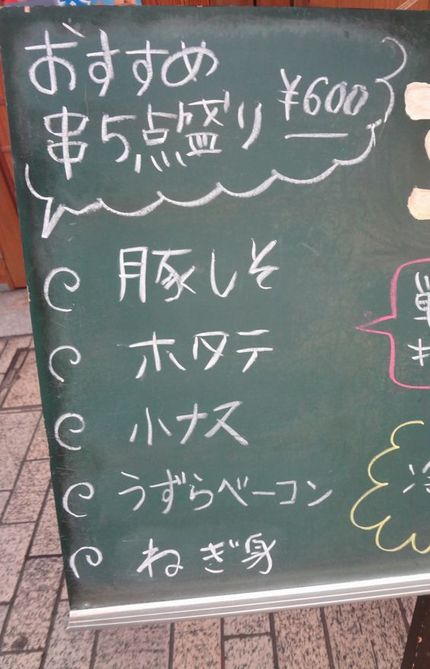 おすすめ
串5点盛り ¥600
豚しそ
ホタテ
小ナス
うずらベーコン
ねぎ身